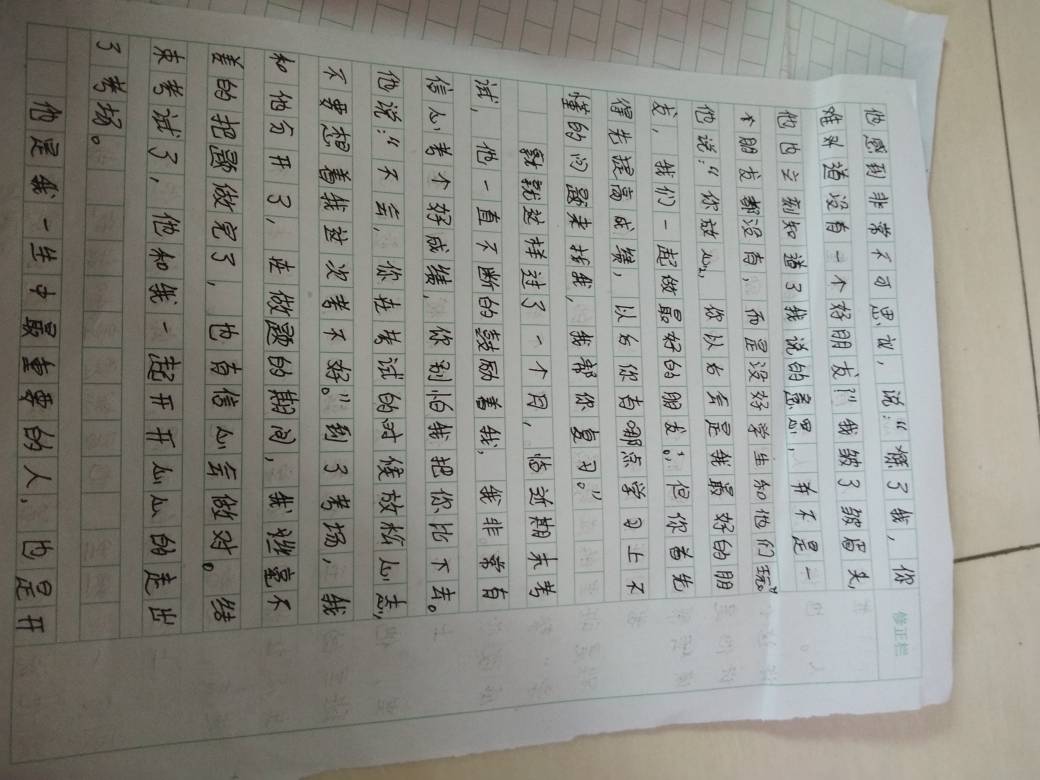 修正栏
他感到非常不可思议，说：“除了我，你
难道没有一个好朋友？”我皱了皱眉头，
他也立刻知道了我说的意思，并不是一
个朋友都没有，而是没好学生和他们玩。
他说：“你放心，你以后会是我最好的朋
友，我们一起做最好的朋友。但你首先
得先提高成绩，以后你有哪点学习上不
懂的问题来找我，我帮你复习。”
就就这样过了一个月，临近期末考
试，他一直不断的鼓励着我，我非常有
信心考个好成绩，你别怕我把你比下去。
他说：“不会，你在考试的时候放松心态，
不要想着我这次考不好。”到了考场，我
和他分开了，在做题的期间，我丝毫不
差的把题做完了，也有信心会做对。结
束考试了，他和我一起开开心心的走出
了考场。
他是我一生中最重要的人，也是开